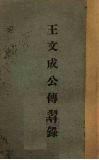 王文成公傳習錄